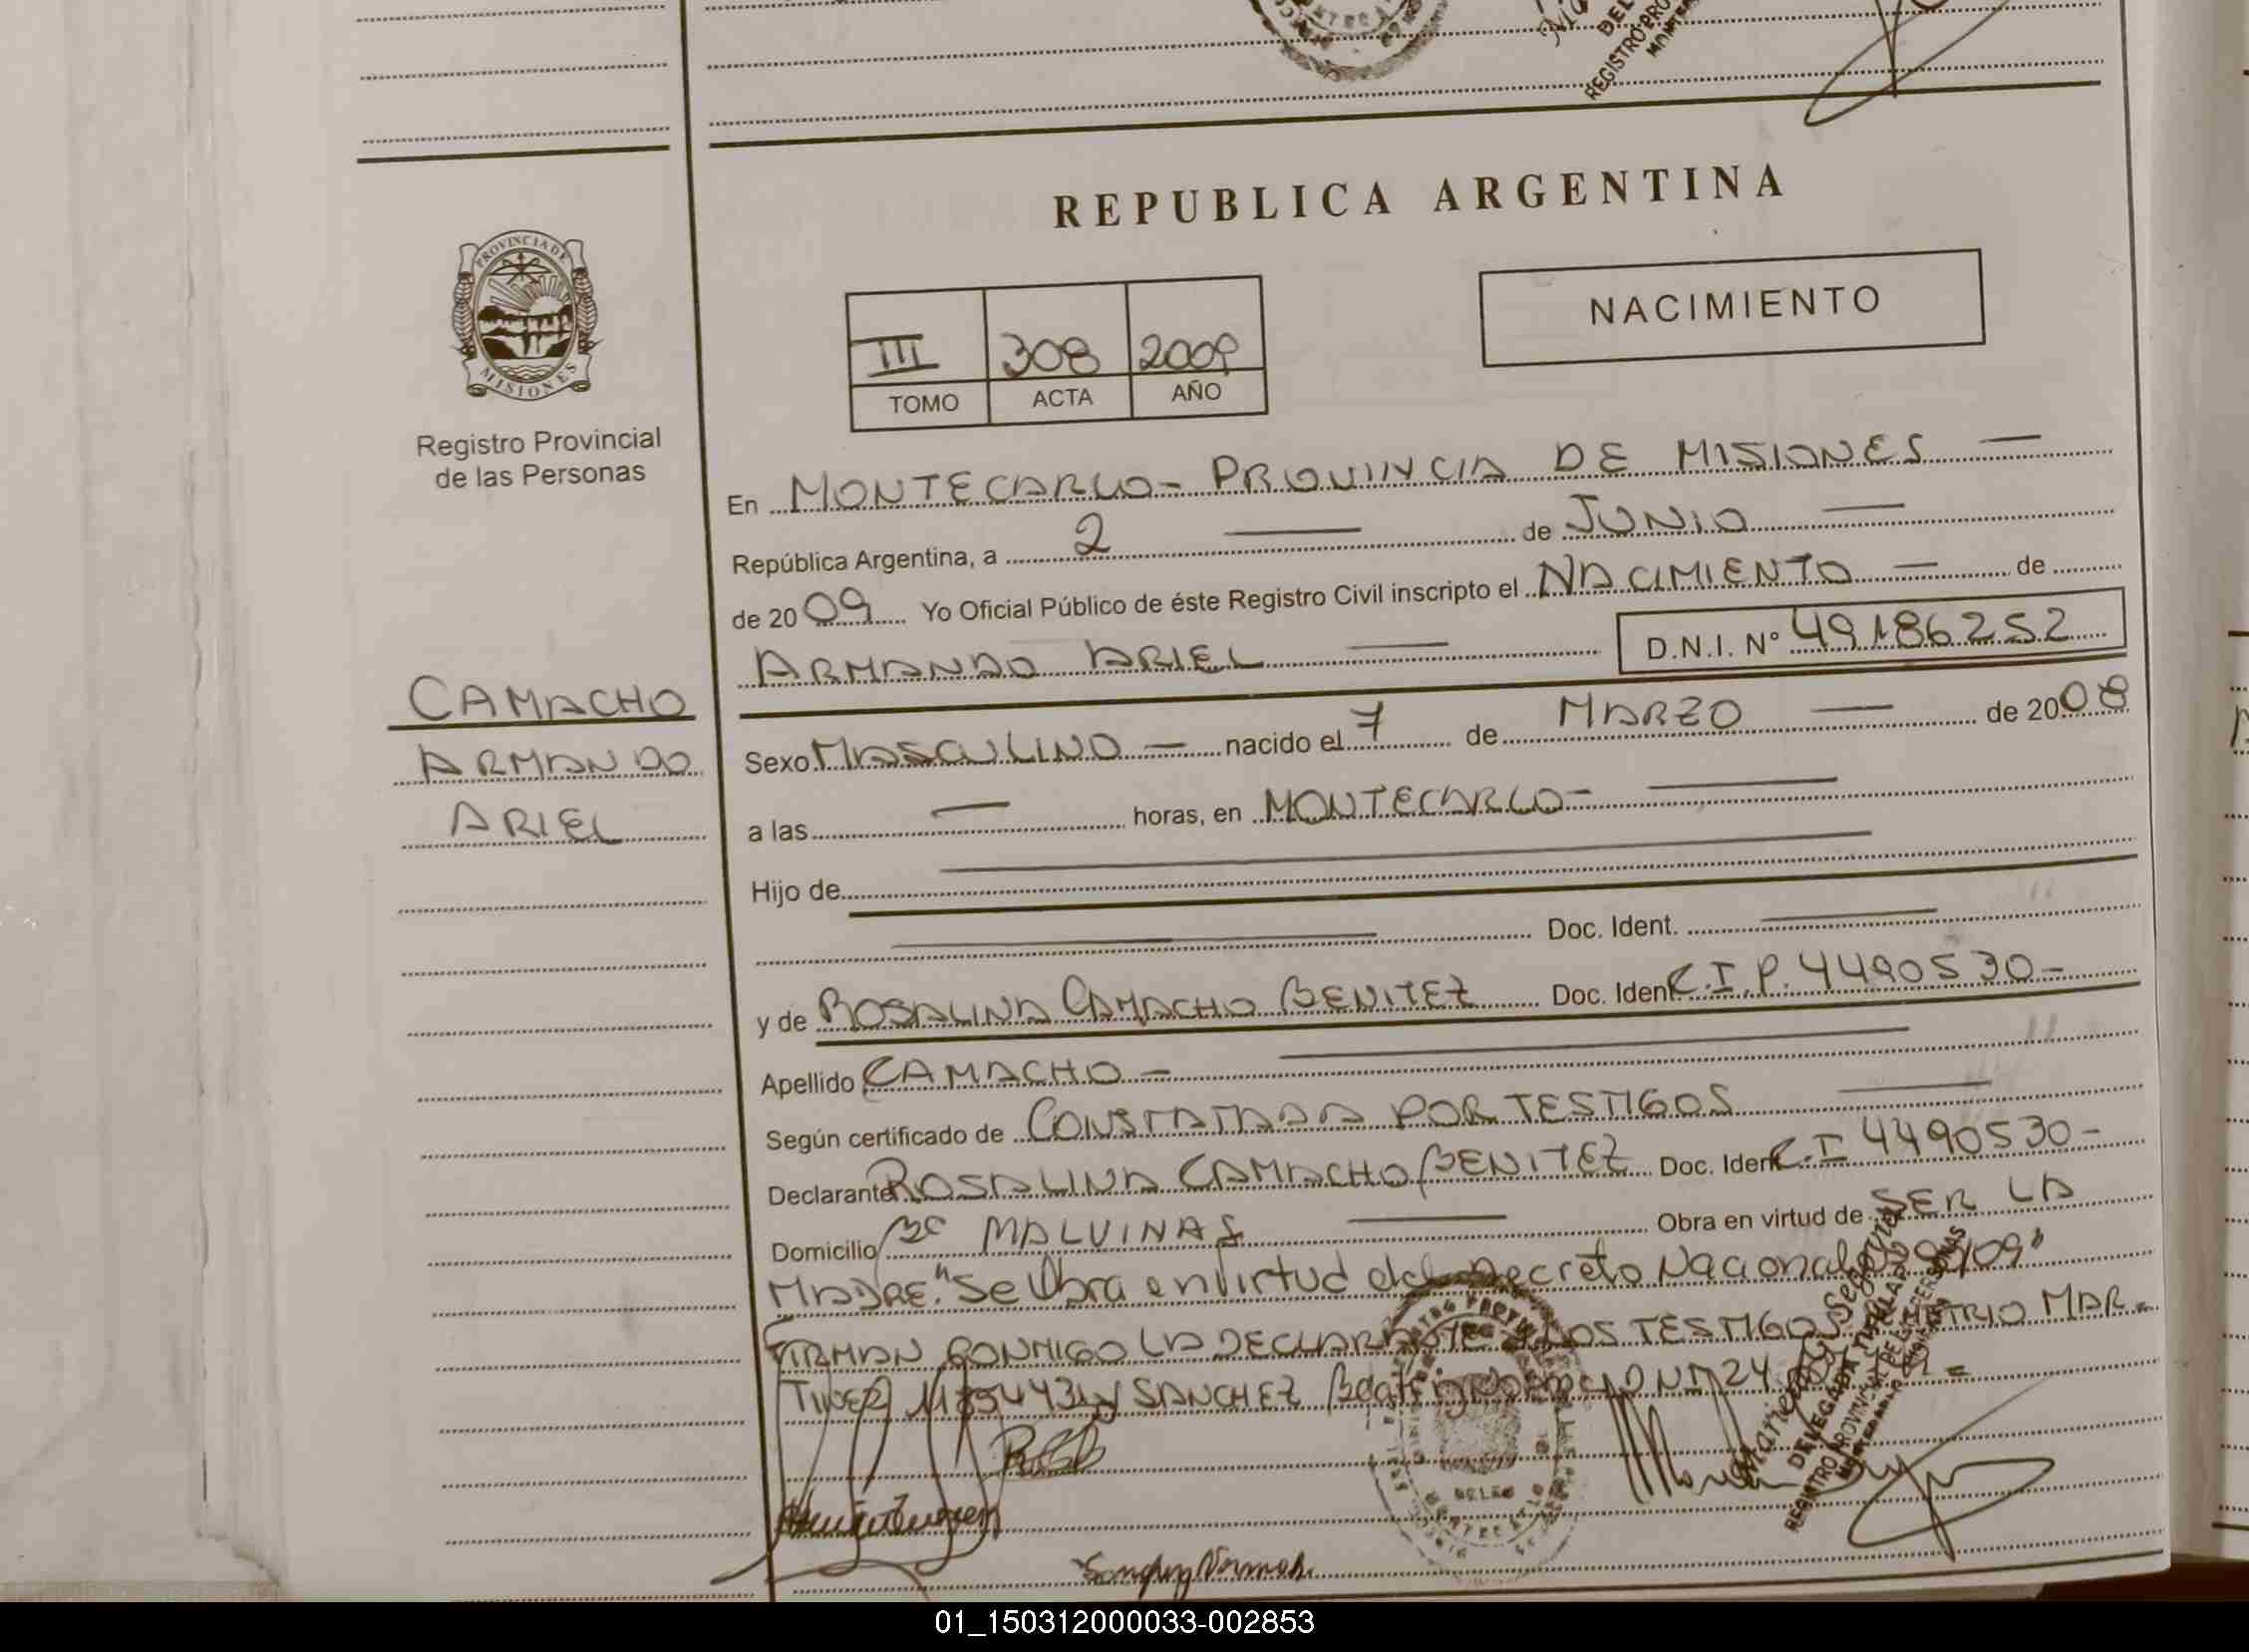 REPUBLICA ARGENTINA
PROVINCIA DE
MISIONES
Registro Provincial
de las Personas
NACIMIENTO
III 308 2009
TOMO ACTA AÑO
En MONTECARLO - PROVINCIA DE MISIONES —
República Argentina, a 2 — de JUNIO —
de 2009 Yo Oficial Público de éste Registro Civil inscripto el NACIMIENTO — de
ARMANDO ARIEL — D.N.I. Nº 49186252
CAMACHO
ARMANDO
ARIEL
Sexo MASCULINO — nacido el 7 de MARZO — de 2008
a las — horas, en MONTECARLO - —
Hijo de —
— Doc. Ident. —
y de ROSALINA CAMACHO BENITEZ Doc. Ident. C.I.P. 4490530-
Apellido CAMACHO - —
Según certificado de CONSTATADA POR TESTIGOS —
Declarante ROSALINA CAMACHO BENITEZ Doc. Ident. C.I 4490530-
Domicilio Bº MALVINAS — Obra en virtud de SER LA
MADRE. "Se Obra en virtud del Decreto Nacional 90/09"
FIRMAN CONMIGO LA DECLARANTE LOS TESTIGOS MAR-
TINEZ Y SANCHEZ DNI 24
DELEGADA TITULAR
REGISTRO PROVINCIAL DE LAS PERSONAS
01_150312000033-002853